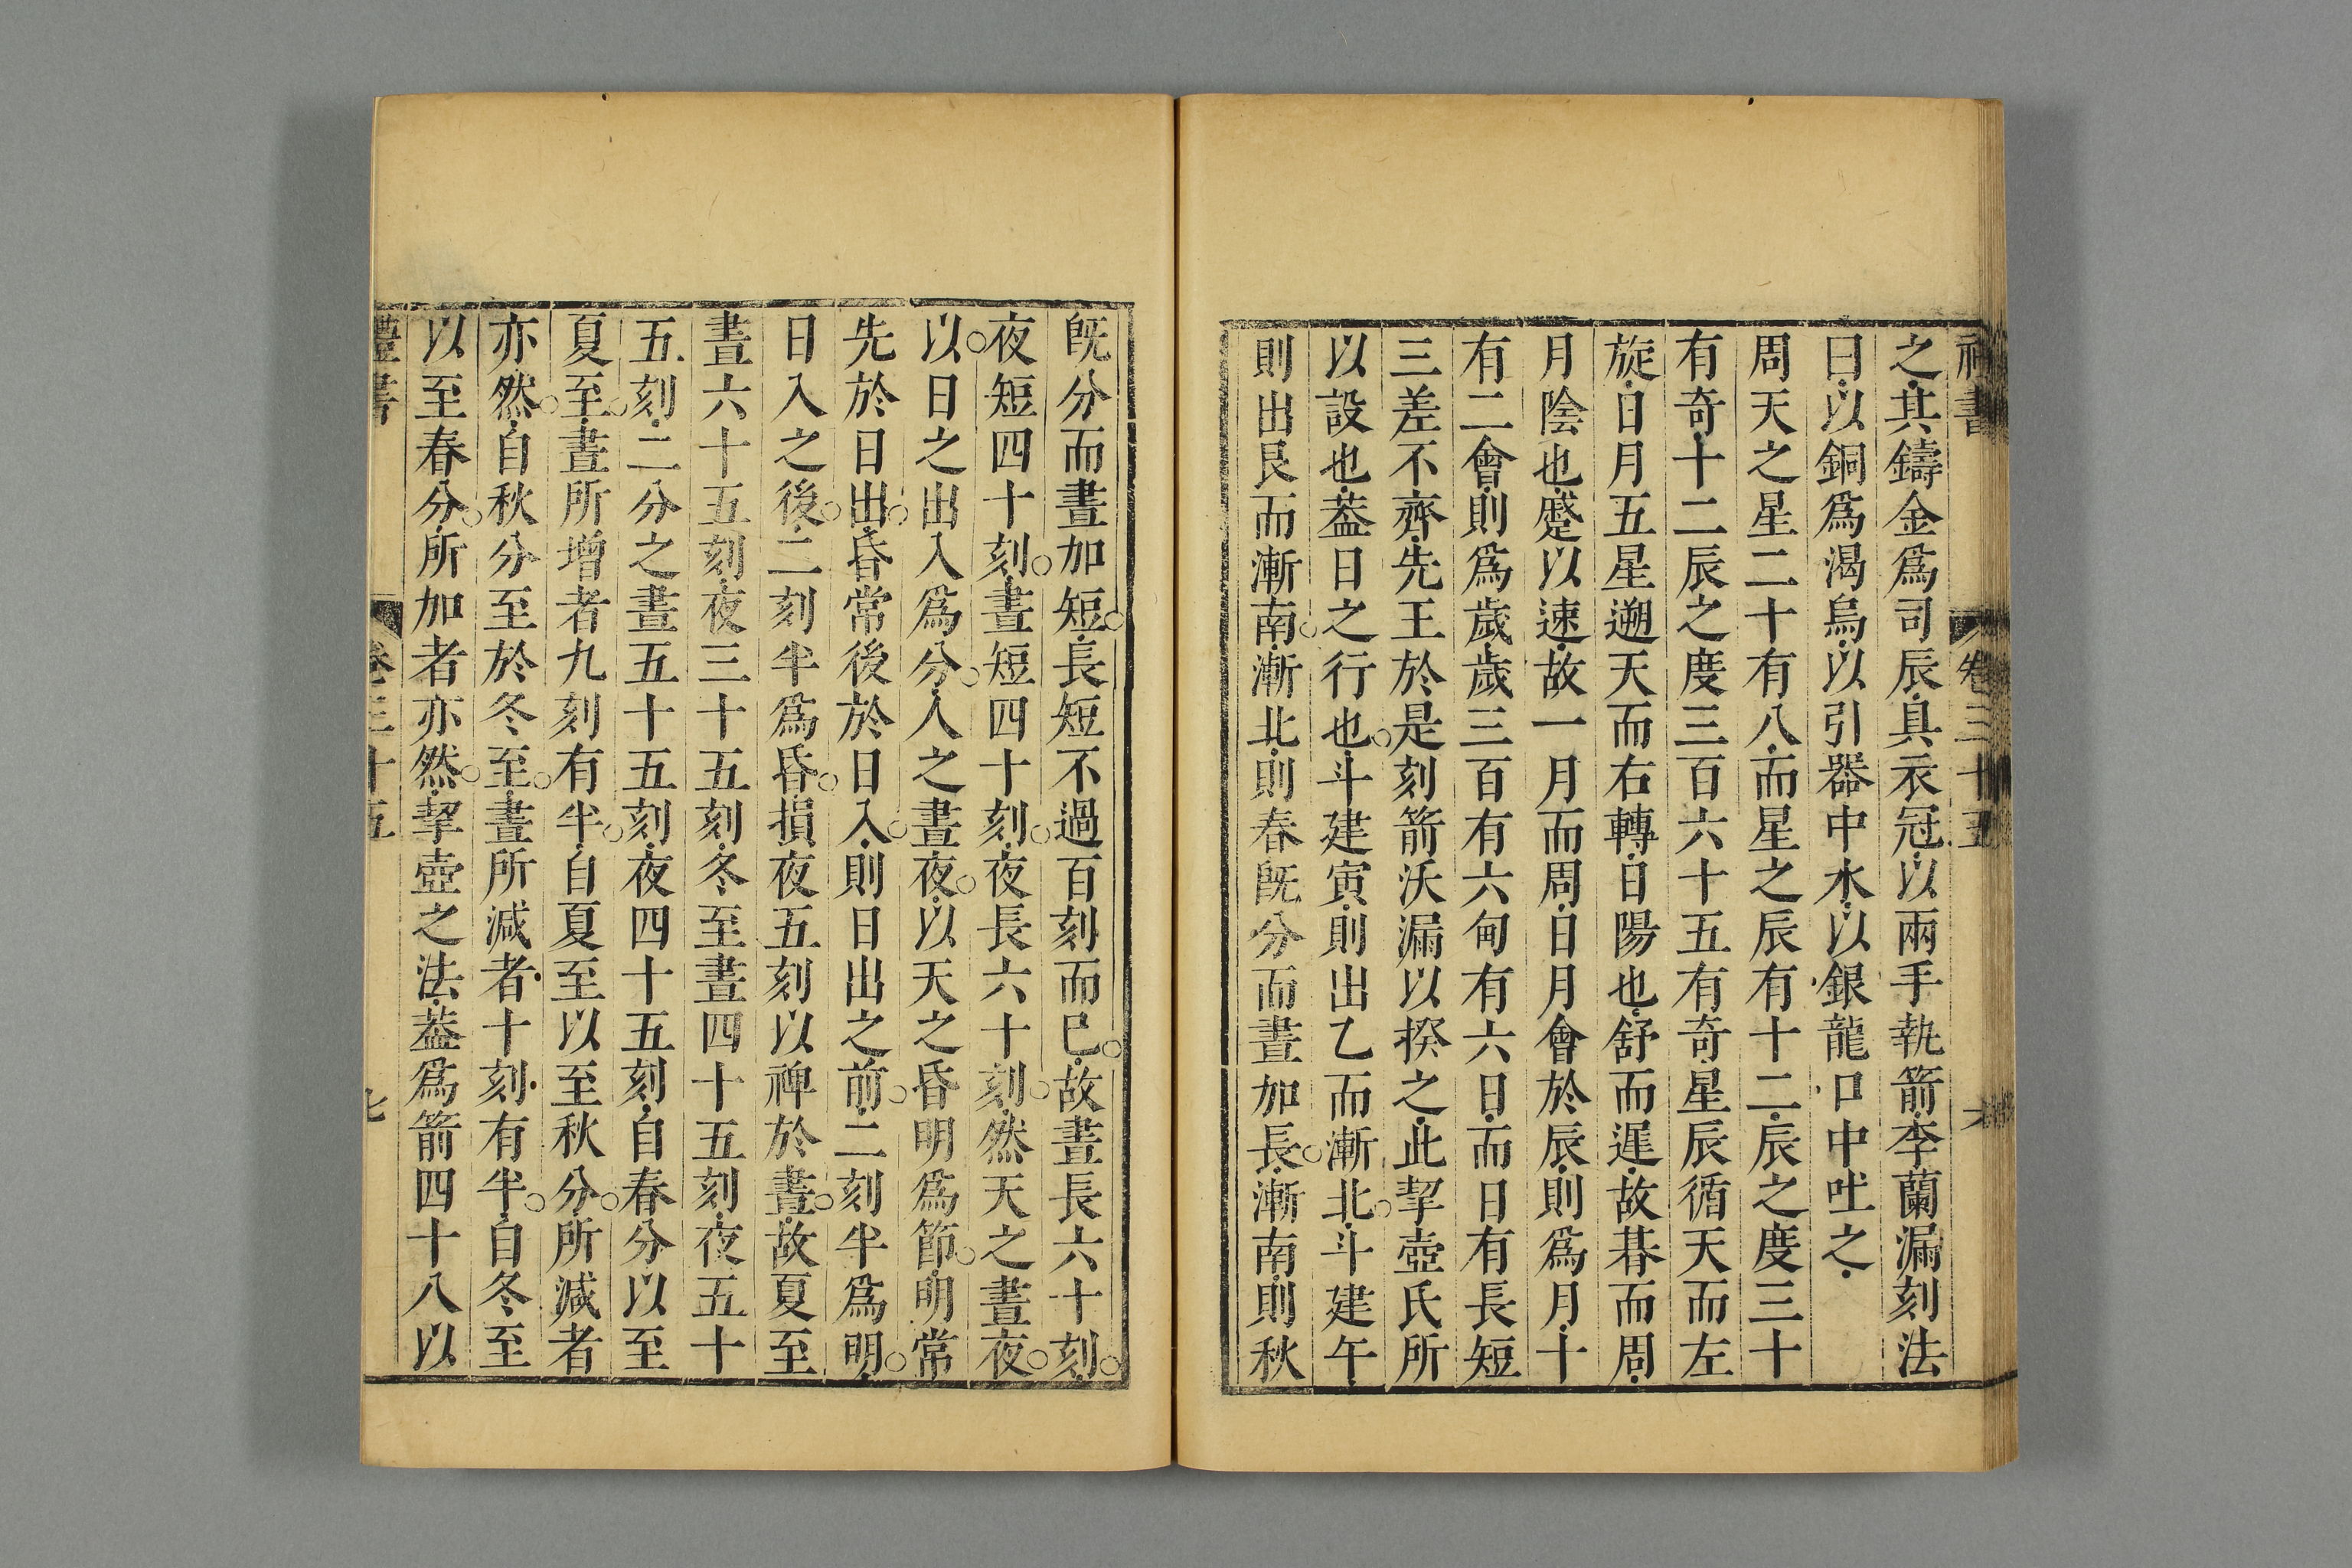 禮書 卷三十五 六
之其鑄金爲司辰具衣冠以兩手執箭李蘭漏刻法
曰以銅爲渴烏以引器中水以銀龍口中吐之
周天之星二十有八而星之辰有十二辰之度三十
有奇十二辰之度三百六十五有奇星辰循天而左
旋日月五星遡天而右轉日陽也舒而遲故朞而周
月陰也蹙以速故一月而周日月會於辰則爲月十
有二會則爲歲歲三百有六旬有六日而日有長短
三差不齊先王於是刻箭沃漏以揆之此挈壺氏所
以設也葢日之行也斗建寅則出乙而漸北斗建午
則出艮而漸南漸北則春旣分而晝加長漸南則秋
旣分而晝加短長短不過百刻而巳故晝長六十刻
夜短四十刻晝短四十刻夜長六十刻然天之晝夜
以日之出入爲分人之晝夜以天之昏明爲節明常
先於日出昏常後於日入則日出之前二刻半爲明
日入之後二刻半爲昏損夜五刻以裨於晝故夏至
晝六十五刻夜三十五刻冬至晝四十五刻夜五十
五刻二分之晝五十五刻夜四十五刻自春分以至
夏至晝所增者九刻有半自夏至以至秋分所減者
亦然自秋分至於冬至晝所減者十刻有半自冬至
以至春分所加者亦然挈壺之法葢爲箭四十八以
禮書 卷三十五 七